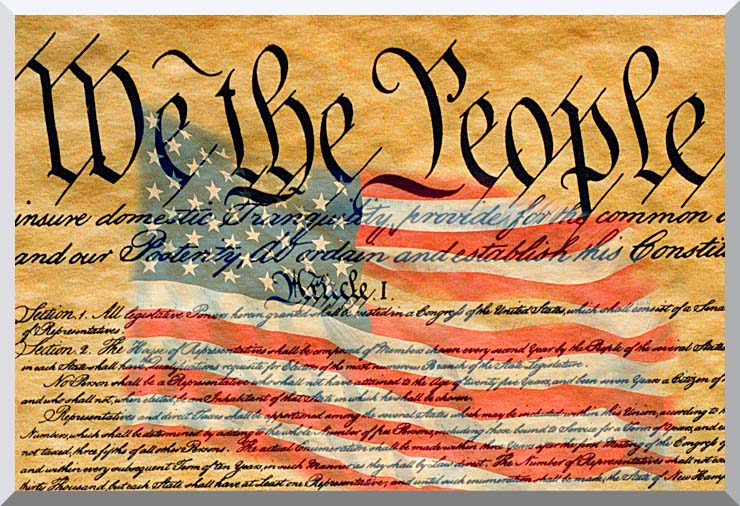 We the People
insure domestic Tranquility, provide for the common
and our Posterity, do ordain and establish this Constitu
Article I
Section 1. All legislative Powers herein granted shall be vested in a Congress of the United States, which shall consist of a Sena
of Representatives.
Section 2. The House of Representatives shall be composed of Members chosen every second Year by the People of the several States
in each State shall have Qualifications requisite for Electors of the most numerous Branch of the State Legislature.
No Person shall be a Representative who shall not have attained to the Age of twenty five Years, and been seven Years a Citizen of
and who shall not, when elected, be an Inhabitant of that State in which he shall be chosen.
Representatives and direct Taxes shall be apportioned among the several States which may be included within this Union, according to
Numbers, which shall be determined by adding to the whole Number of free Persons, including those bound to Service for a Term of Years, and
not taxed, three fifths of all other Persons. The actual Enumeration shall be made within three Years after the first Meeting of the Congress of
and within every subsequent Term of ten Years, in such Manner as they shall by Law direct. The Number of Representatives shall not
thirty Thousand, but each State shall have at Least one Representative; and until such enumeration shall be made, the State of New Hamp